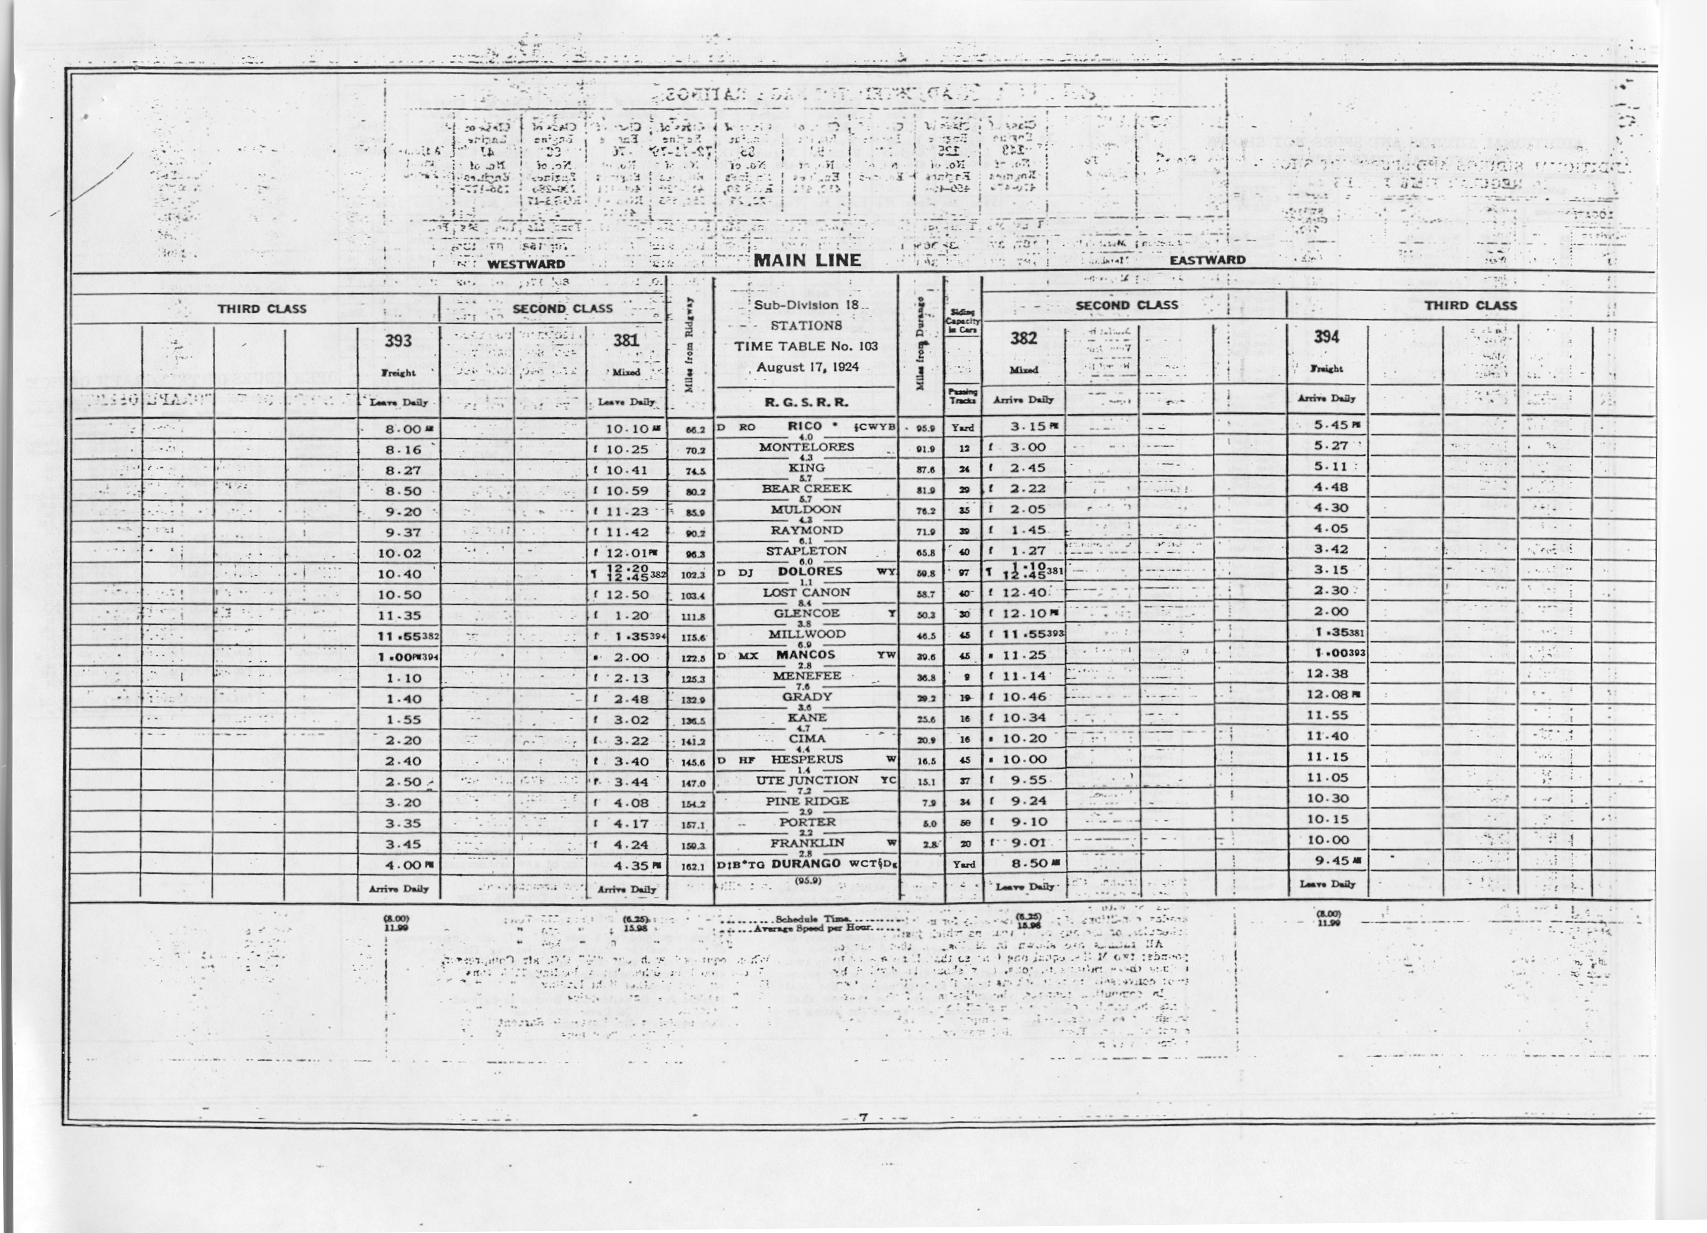 WESTWARD MAIN LINE EASTWARD
THIRD CLASS SECOND CLASS Miles from Ridgway Sub-Division 18 Miles from Durango Siding Capacity in Cars SECOND CLASS THIRD CLASS
STATIONS
393 381 TIME TABLE No. 103 382 394
Freight Mixed August 17, 1924 Mixed Freight
Leave Daily Leave Daily R. G. S. R. R. Passing Tracks Arrive Daily Arrive Daily
8.00 AM 10.10 AM 66.2 D RO RICO * §CWYB 95.9 Yard 3.15 PM 5.45 PM
4.0
8.16 f 10.25 70.2 MONTELORES 91.9 12 f 3.00 5.27
4.3
8.27 f 10.41 74.5 KING 87.6 24 f 2.45 5.11
5.7
8.50 f 10.59 80.2 BEAR CREEK 81.9 29 f 2.22 4.48
5.7
9.20 f 11.23 85.9 MULDOON 76.2 35 f 2.05 4.30
4.3
9.37 f 11.42 90.2 RAYMOND 71.9 39 f 1.45 4.05
6.1
10.02 f 12.01 PM 96.3 STAPLETON 65.8 40 f 1.27 3.42
6.0
10.40 ¶ 12.20 12.45 382 102.3 D DJ DOLORES WY 59.8 97 ¶ 1.10 12.45 381 3.15
1.1
10.50 f 12.50 103.4 LOST CANON 58.7 40 f 12.40 2.30
8.4
11.35 f 1.20 111.8 GLENCOE Y 50.3 30 f 12.10 PM 2.00
3.8
11.55 382 f 1.35 394 115.6 MILLWOOD 46.5 45 f 11.55 393 1.35 381
6.9
1.00 PM 394 s 2.00 122.5 D MX MANCOS YW 39.6 45 s 11.25 1.00 393
2.8
1.10 f 2.13 125.3 MENEFEE 36.8 9 f 11.14 12.38
7.6
1.40 f 2.48 132.9 GRADY 29.2 19 f 10.46 12.08 PM
3.6
1.55 f 3.02 136.5 KANE 25.6 16 f 10.34 11.55
4.7
2.20 f 3.22 141.2 CIMA 20.9 16 s 10.20 11.40
4.4
2.40 f 3.40 145.6 D HF HESPERUS W 16.5 45 s 10.00 11.15
1.4
2.50 f 3.44 147.0 UTE JUNCTION YC 15.1 37 f 9.55 11.05
7.2
3.20 f 4.08 154.2 PINE RIDGE 7.9 34 f 9.24 10.30
2.9
3.35 f 4.17 157.1 PORTER 5.0 50 f 9.10 10.15
2.2
3.45 f 4.24 159.3 FRANKLIN W 2.8 20 f 9.01 10.00
2.8
4.00 PM 4.35 PM 162.1 DURANGO Yard 8.50 AM 9.45 AM
(95.9)
Arrive Daily Arrive Daily Leave Daily Leave Daily
(8.00) (6.25) Schedule Time (6.25) (8.00)
11.99 15.98 Average Speed per Hour 15.98 11.99
7